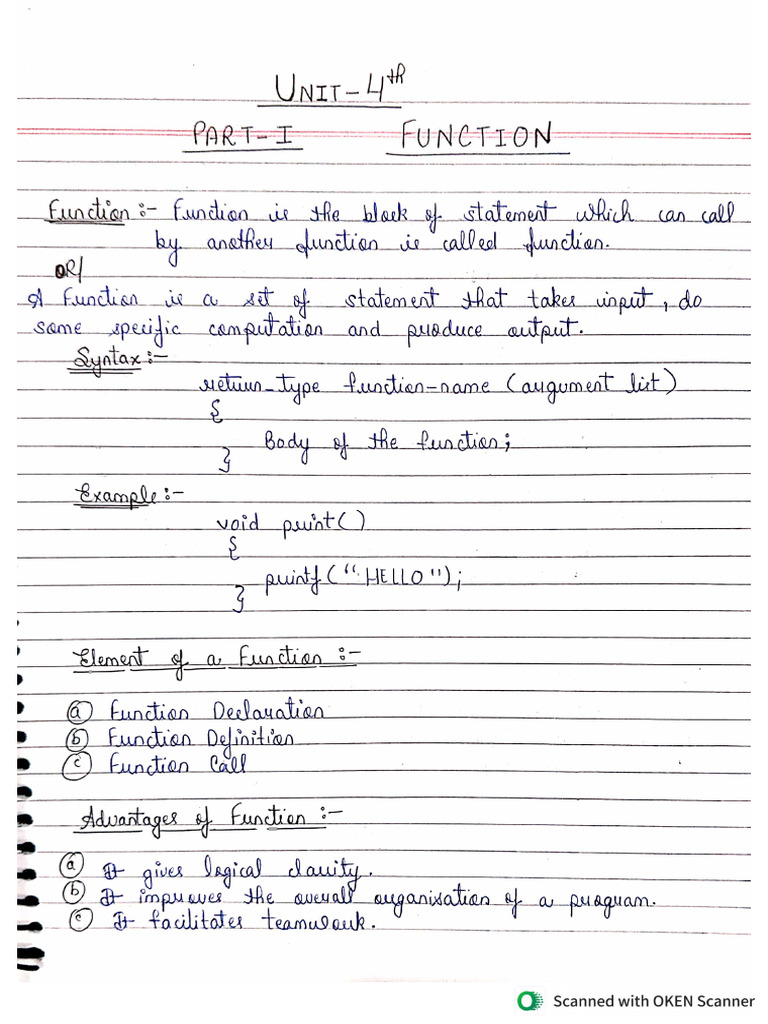 UNIT-4th
PART-I FUNCTION
Function :- Function is the block of statement which can call
by another function is called function.
OR/
A Function is a set of statement that takes input, do
some specific computation and produce output.
Syntax :-
return_type function-name (argument list)
{
Body of the function;
}
Example :-
void print()
{
printf("HELLO");
}
Element of a Function :-
(a) Function Declaration
(b) Function Definition
(c) Function Call
Advantages of Function :-
(a) It gives logical clarity.
(b) It improves the overall organisation of a program.
(c) It facilitates teamwork.
Scanned with OKEN Scanner